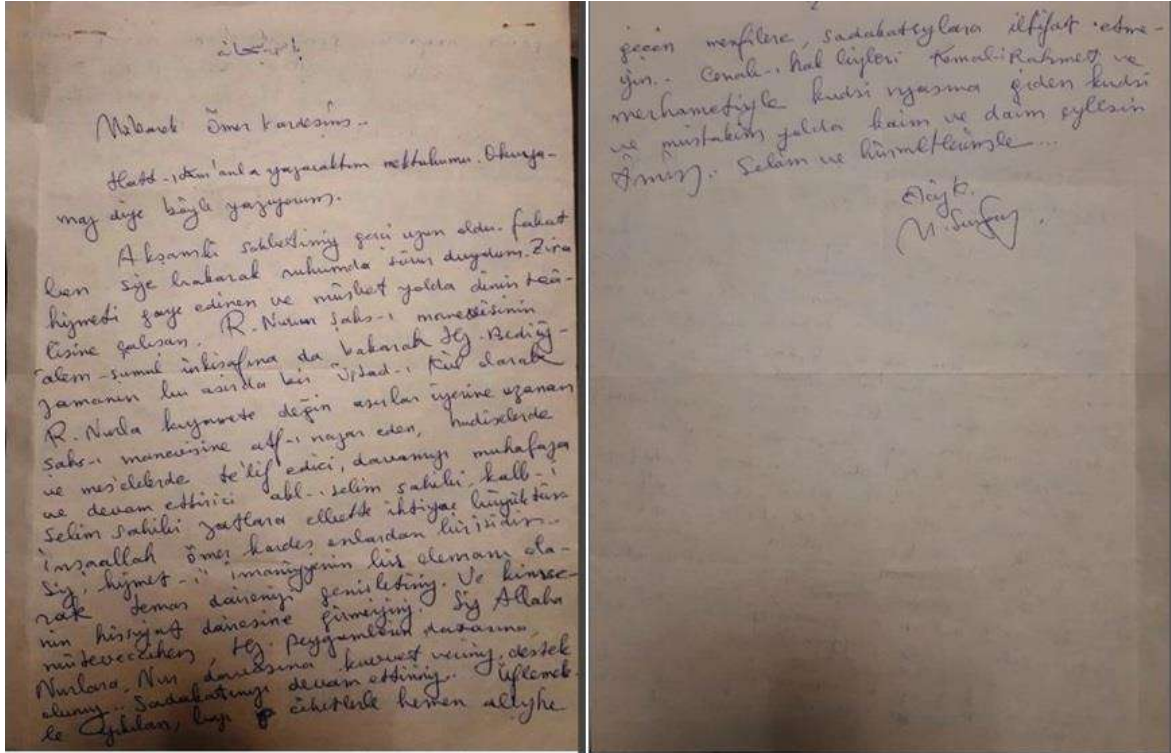 باسمه سبحانه
Mübarek Ömer Kardeşim..
Hatt-ı Kur'anla yazacaktım mektubumu. Okuya-
maz diye böyle yazıyorum.
Akşamki sohbetimiz gerçi uzun oldu. fakat
ben size bakarak ruhumda sürur duydum. Zira
hizmeti gaye edinen ve müsbet yolda dinin teâ-
lisine çalışan, R. Nurun şahs-ı manevisinin
âlem-şumul inkişafına da bakarak Hz. Bediüz-
zamanın bu asırda bir Üstad-ı Kül olarak
R. Nurla kıyamete değin asırlar üzerine uzanan
şahs-ı manevisine atf-ı nazar eden, hadiselerde
ve mes'elelerde te'lif edici, davamızı muhafaza
ve devam ettirici akl-ı selim sahibi, kalb-i
selim sahibi zatlara elbette ihtiyaç büyüktür.
İnşaallah Ömer kardeş onlardan birisidir..
Siz, hizmet-i imaniyenin bir elemanı ola-
rak temas dairenizi genişletiniz. Ve kimse-
nin hissiyat dairesine girmeyiniz. Siz Allaha
müteveccihen, Hz. Peygamberin davasına,
Nurlara, Nur davasına kuvvet veriniz, destek
olunuz.. Sadakatinizi devam ettiriniz. Üflemek-
le yıkılan, bazı cihetlerle hemen aleyhe
2
geçen menfilere, sadakatsizlara iltifat etme-
yin.. Cenab-ı hak sizleri Kemal-i Rahmet ve
merhametiyle kudsi rızasına giden kudsi
ve müstakim yolda kaim ve daim eylesin
Âmin.. Selâm ve hürmetlerimle...
M. Sungur.